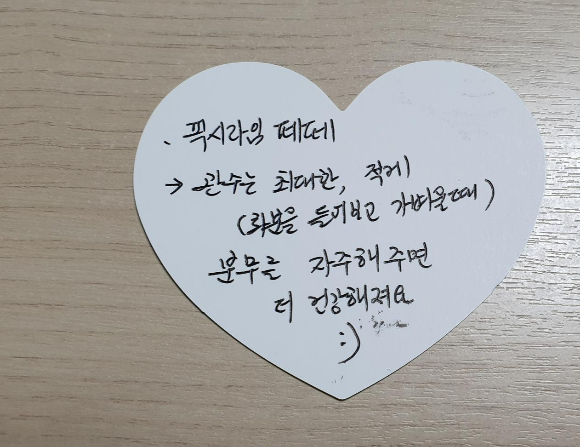 . 픽시라임 페페
→ 관수는 최대한, 적게
(화분을 들어보고 가벼울때)
분무를 자주해주면
더 건강해져요
:)